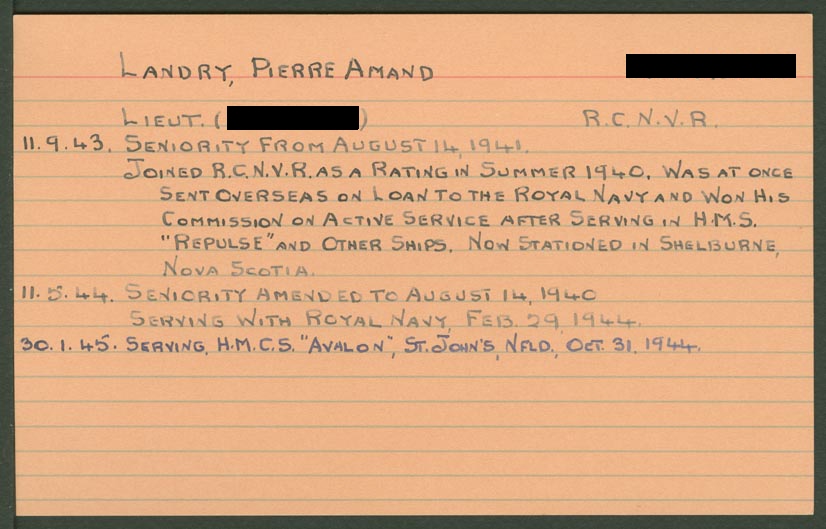 LANDRY, PIERRE AMAND
LIEUT. ( ) R.C.N.V.R.
11.9.43. SENIORITY FROM AUGUST 14, 1941.
JOINED R.C.N.V.R. AS A RATING IN SUMMER 1940, WAS AT ONCE
SENT OVERSEAS ON LOAN TO THE ROYAL NAVY AND WON HIS
COMMISSION ON ACTIVE SERVICE AFTER SERVING IN H.M.S.
"REPULSE" AND OTHER SHIPS. NOW STATIONED IN SHELBURNE,
NOVA SCOTIA.
11.5.44. SENIORITY AMENDED TO AUGUST 14, 1940
SERVING WITH ROYAL NAVY, FEB. 29, 1944.
30.1.45. SERVING, H.M.C.S. "AVALON", ST. JOHN'S, NFLD., OCT. 31, 1944.